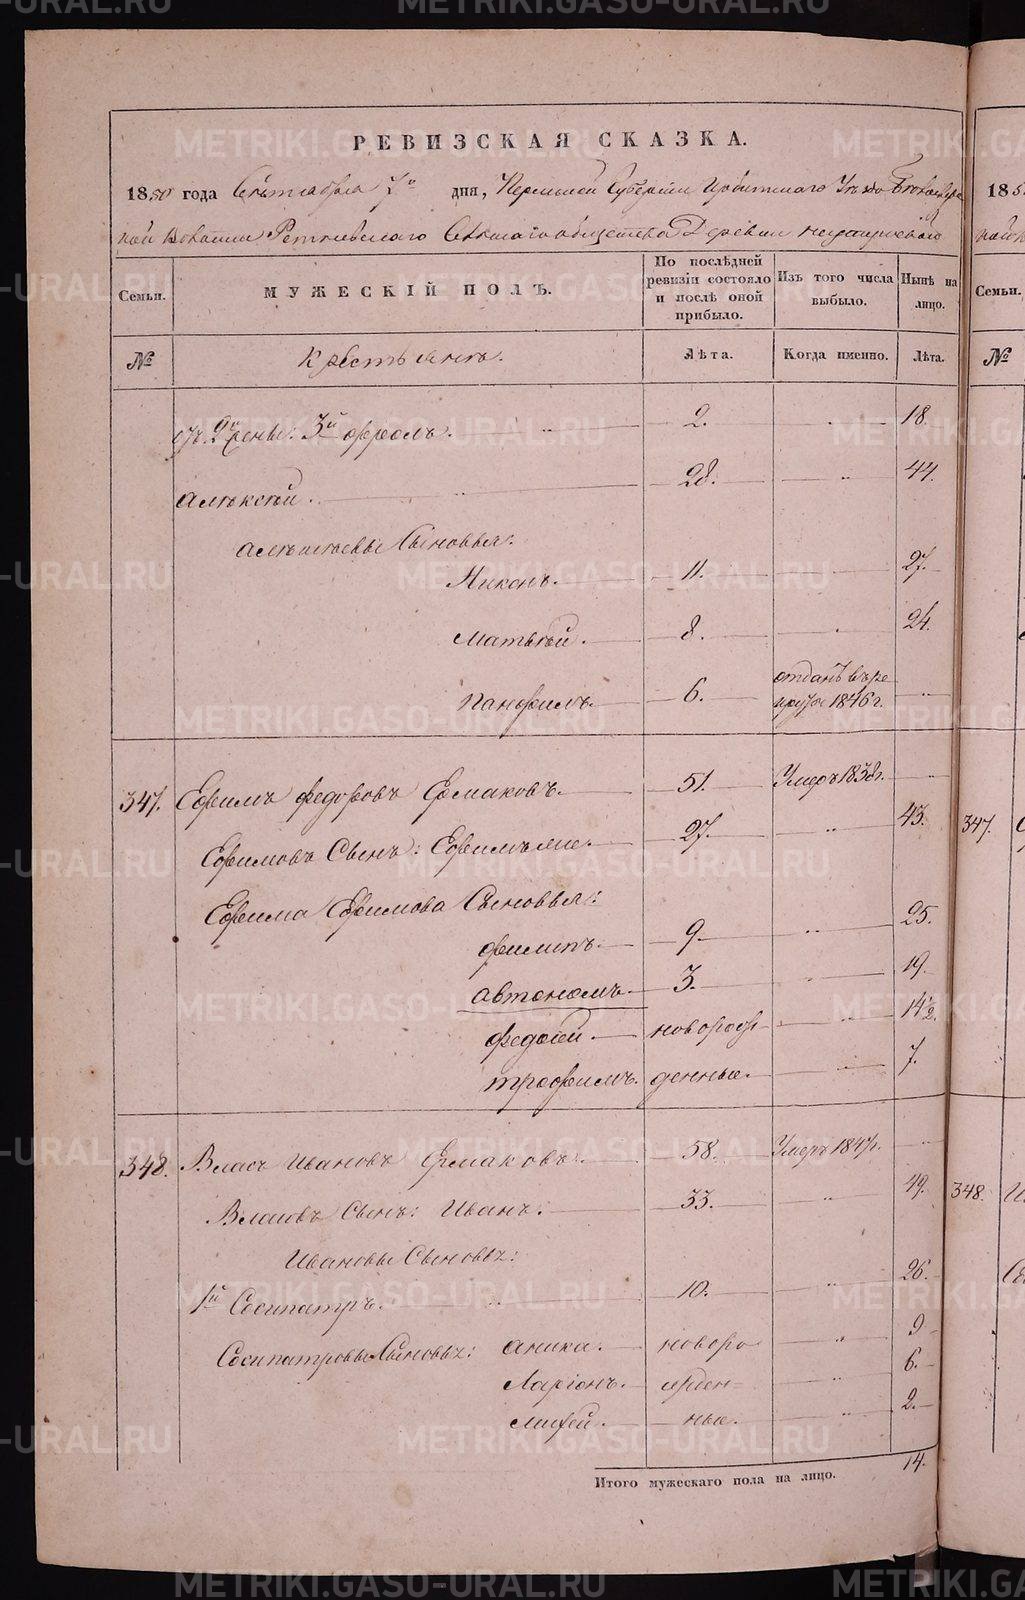 РЕВИЗСКАЯ СКАЗКА.
1850 года Сентября 7го дня, Пермской Губернии Ирбитского Уезда
кой Волости Сельского общества Деревни
Семьи. МУЖЕСКІЙ ПОЛЪ. По послѣдней ревизіи состояло и послѣ оной прибыло. Изъ того числа выбыло. Нынѣ на лицо.
№ Крестьяне. Лѣта. Когда именно. Лѣта.
отъ 2й жены: 3й Фролъ. 2. 18.
Алексѣй. 28. 44.
Алексѣевы Сыновья:
Никонъ. 11. 27.
Матвѣй. 8. 24.
Панфилъ. 6. отданъ въ ре
круты 1846 г.
347. Ефимъ Федоровъ Ермаковъ. 51. Умеръ 1838 г. 347.
Ефимовъ Сынъ: Ефимъ же. 27. 43.
Ефима Ефимова Сыновья:
Филипъ. 9. 25.
Автономъ. 3. 19.
Федосѣй. новорож 14 1/2.
Трофимъ. денные. 7.
348. Власъ Ивановъ Ермаковъ. 58. Умеръ 1847 г.
Власовъ Сынъ: Иванъ: 33. 49. 348.
Ивановы Сыновья:
1й Сосипатръ. 10. 26.
Сосипатровы Сыновья: Аника. новоро 9
Ларіонъ. жден 6.
Мифей. ные. 2.
Итого мужескаго пола на лицо. 14.
185
Семьи.
№
METRIKI.GASO-URAL.RU